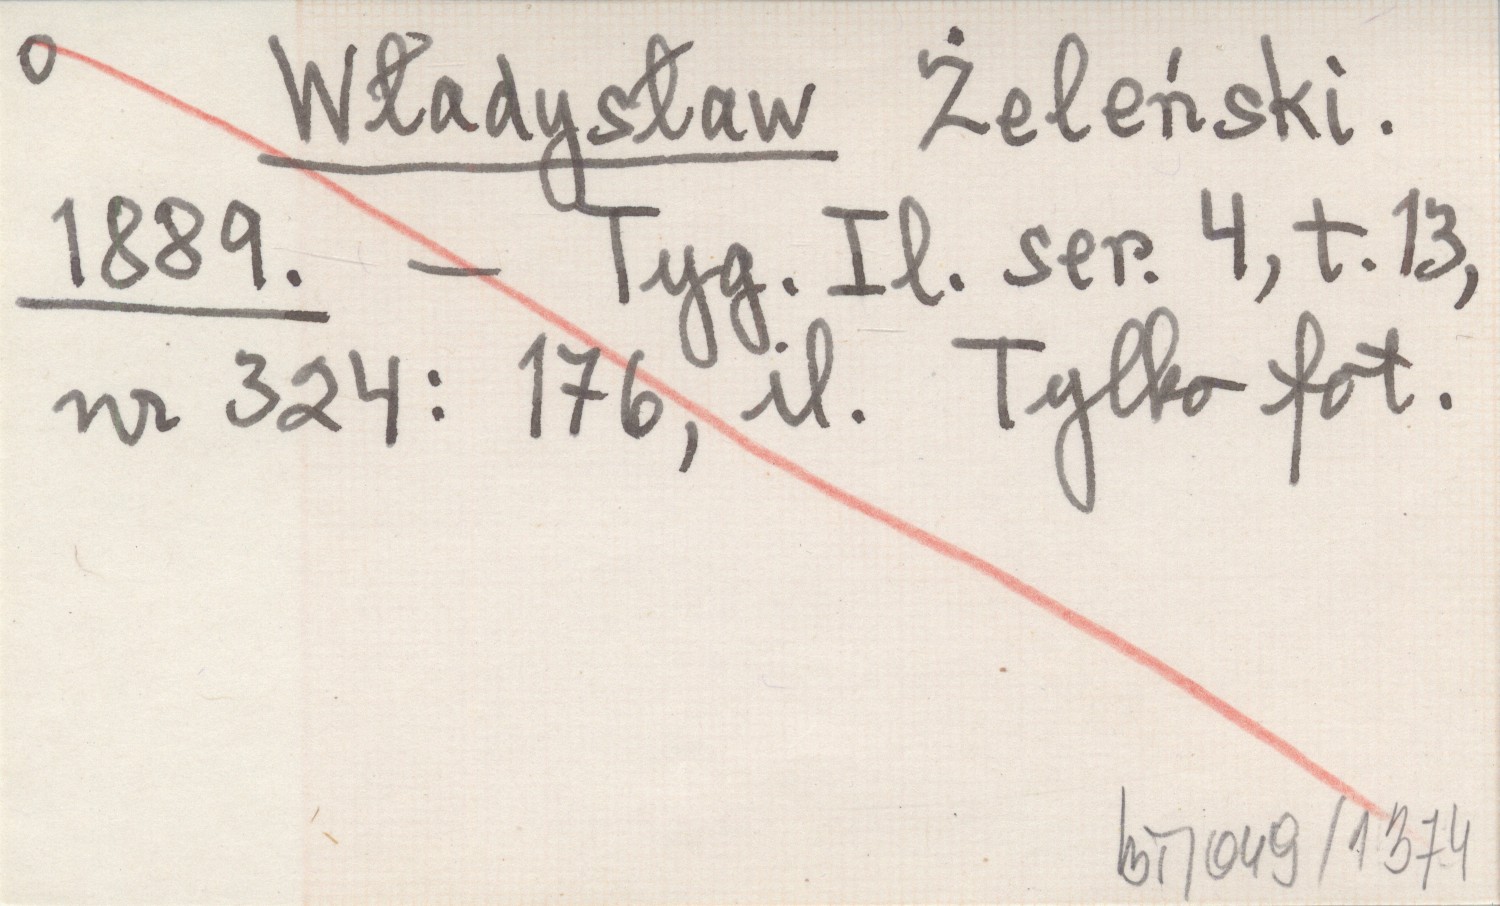 o Władysław Żeleński.
1889. — Tyg. Il. ser. 4, t. 13,
nr 324: 176, il. Tylko fot.
049/1374